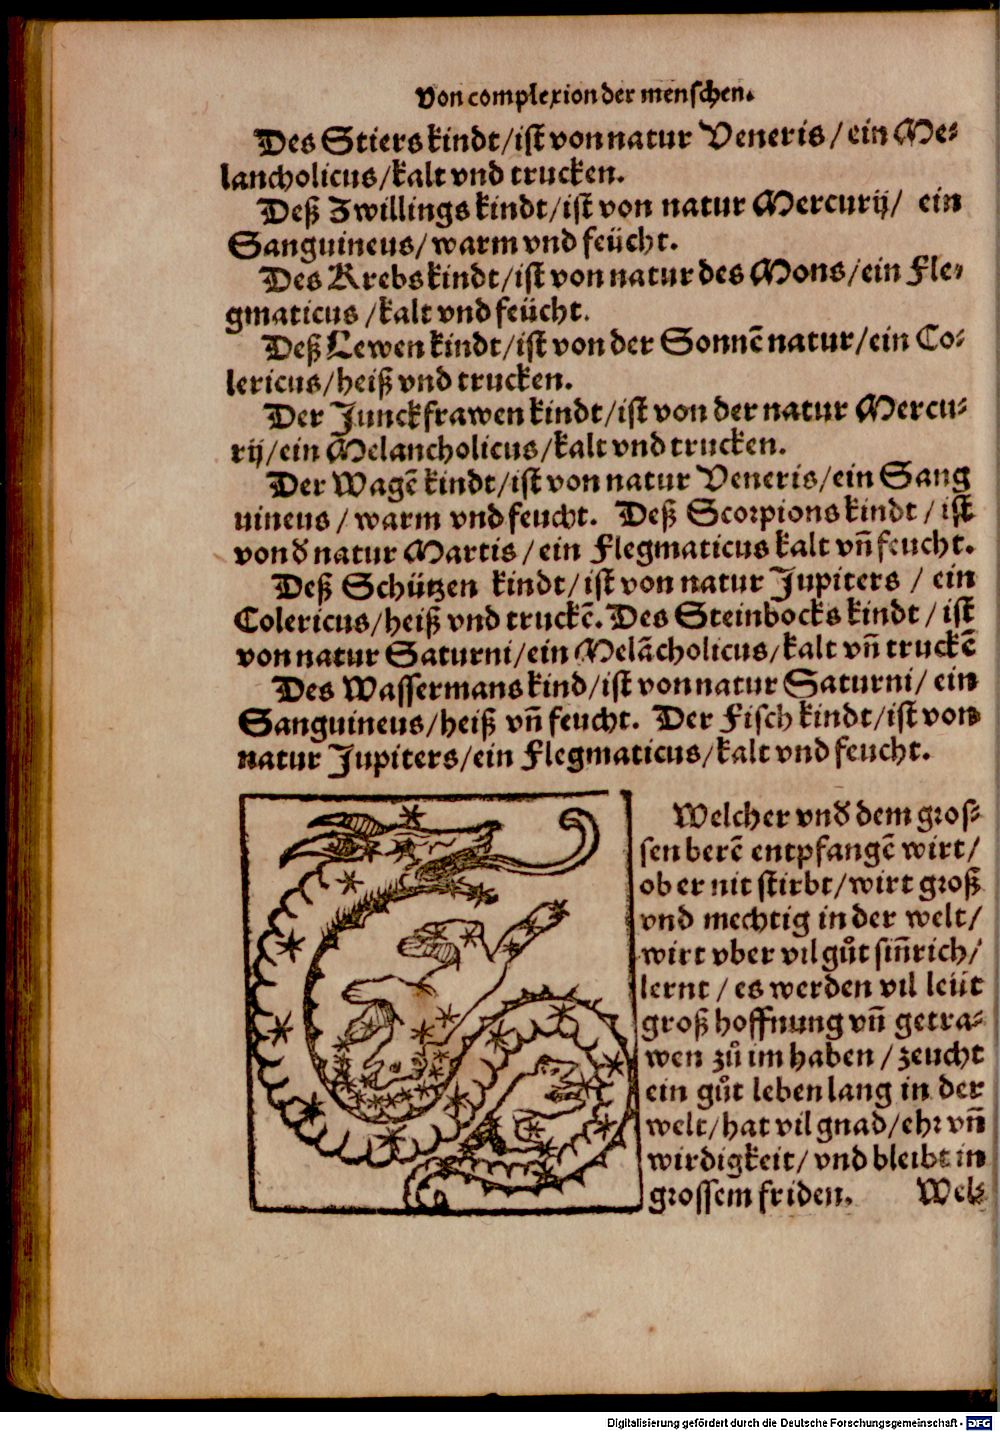 Von complexion der menschen.
Des Stiers kindt/ist von natur Veneris/ein Me-
lancholicus/kalt vnd trucken.
Deß Zwillings kindt/ist von natur Mercurij/ ein
Sanguineus/warm vnd feücht.
Des Krebs kindt/ist von natur des Mons/ein Fle-
gmaticus/kalt vnd feücht.
Deß Lewen kindt/ist von der Sonnē natur/ein Co-
lericus/heiß vnd trucken.
Der Junckfrawen kindt/ist von der natur Mercu-
rij/ein Melancholicus/kalt vnd trucken.
Der Wagē kindt/ist von natur Veneris/ein Sang
uineus/warm vnd feucht. Deß Scorpions kindt/ist
von d̄ natur Martis/ein Flegmaticus kalt vn̄ feucht.
Deß Schützen kindt/ist von natur Jupiters/ein
Colericus/heiß vnd truckē. Des Steinbocks kindt/ist
von natur Saturni/ein Melācholicus/kalt vn̄ truckē
Des Wassermans kind/ist von natur Saturni/ein
Sanguineus/heiß vn̄ feucht. Der Fisch kindt/ist von
natur Jupiters/ein Flegmaticus/kalt vnd feucht.
Welcher vnd̄ dem gros-
sen berē entpfangē wirt/
ob er nit stirbt/wirt groß
vnd mechtig in der welt/
wirt vber vil gůt sin̄rich/
lernt/es werden vil leüt
groß hoffnung vn̄ getra-
wen zů im haben/zeucht
ein gůt leben lang in der
welt/hat vil gnad/ehr vn̄
wirdigkeit/vnd bleibt in
grossem friden. Wel-
Digitalisierung gefördert durch die Deutsche Forschungsgemeinschaft - DFG